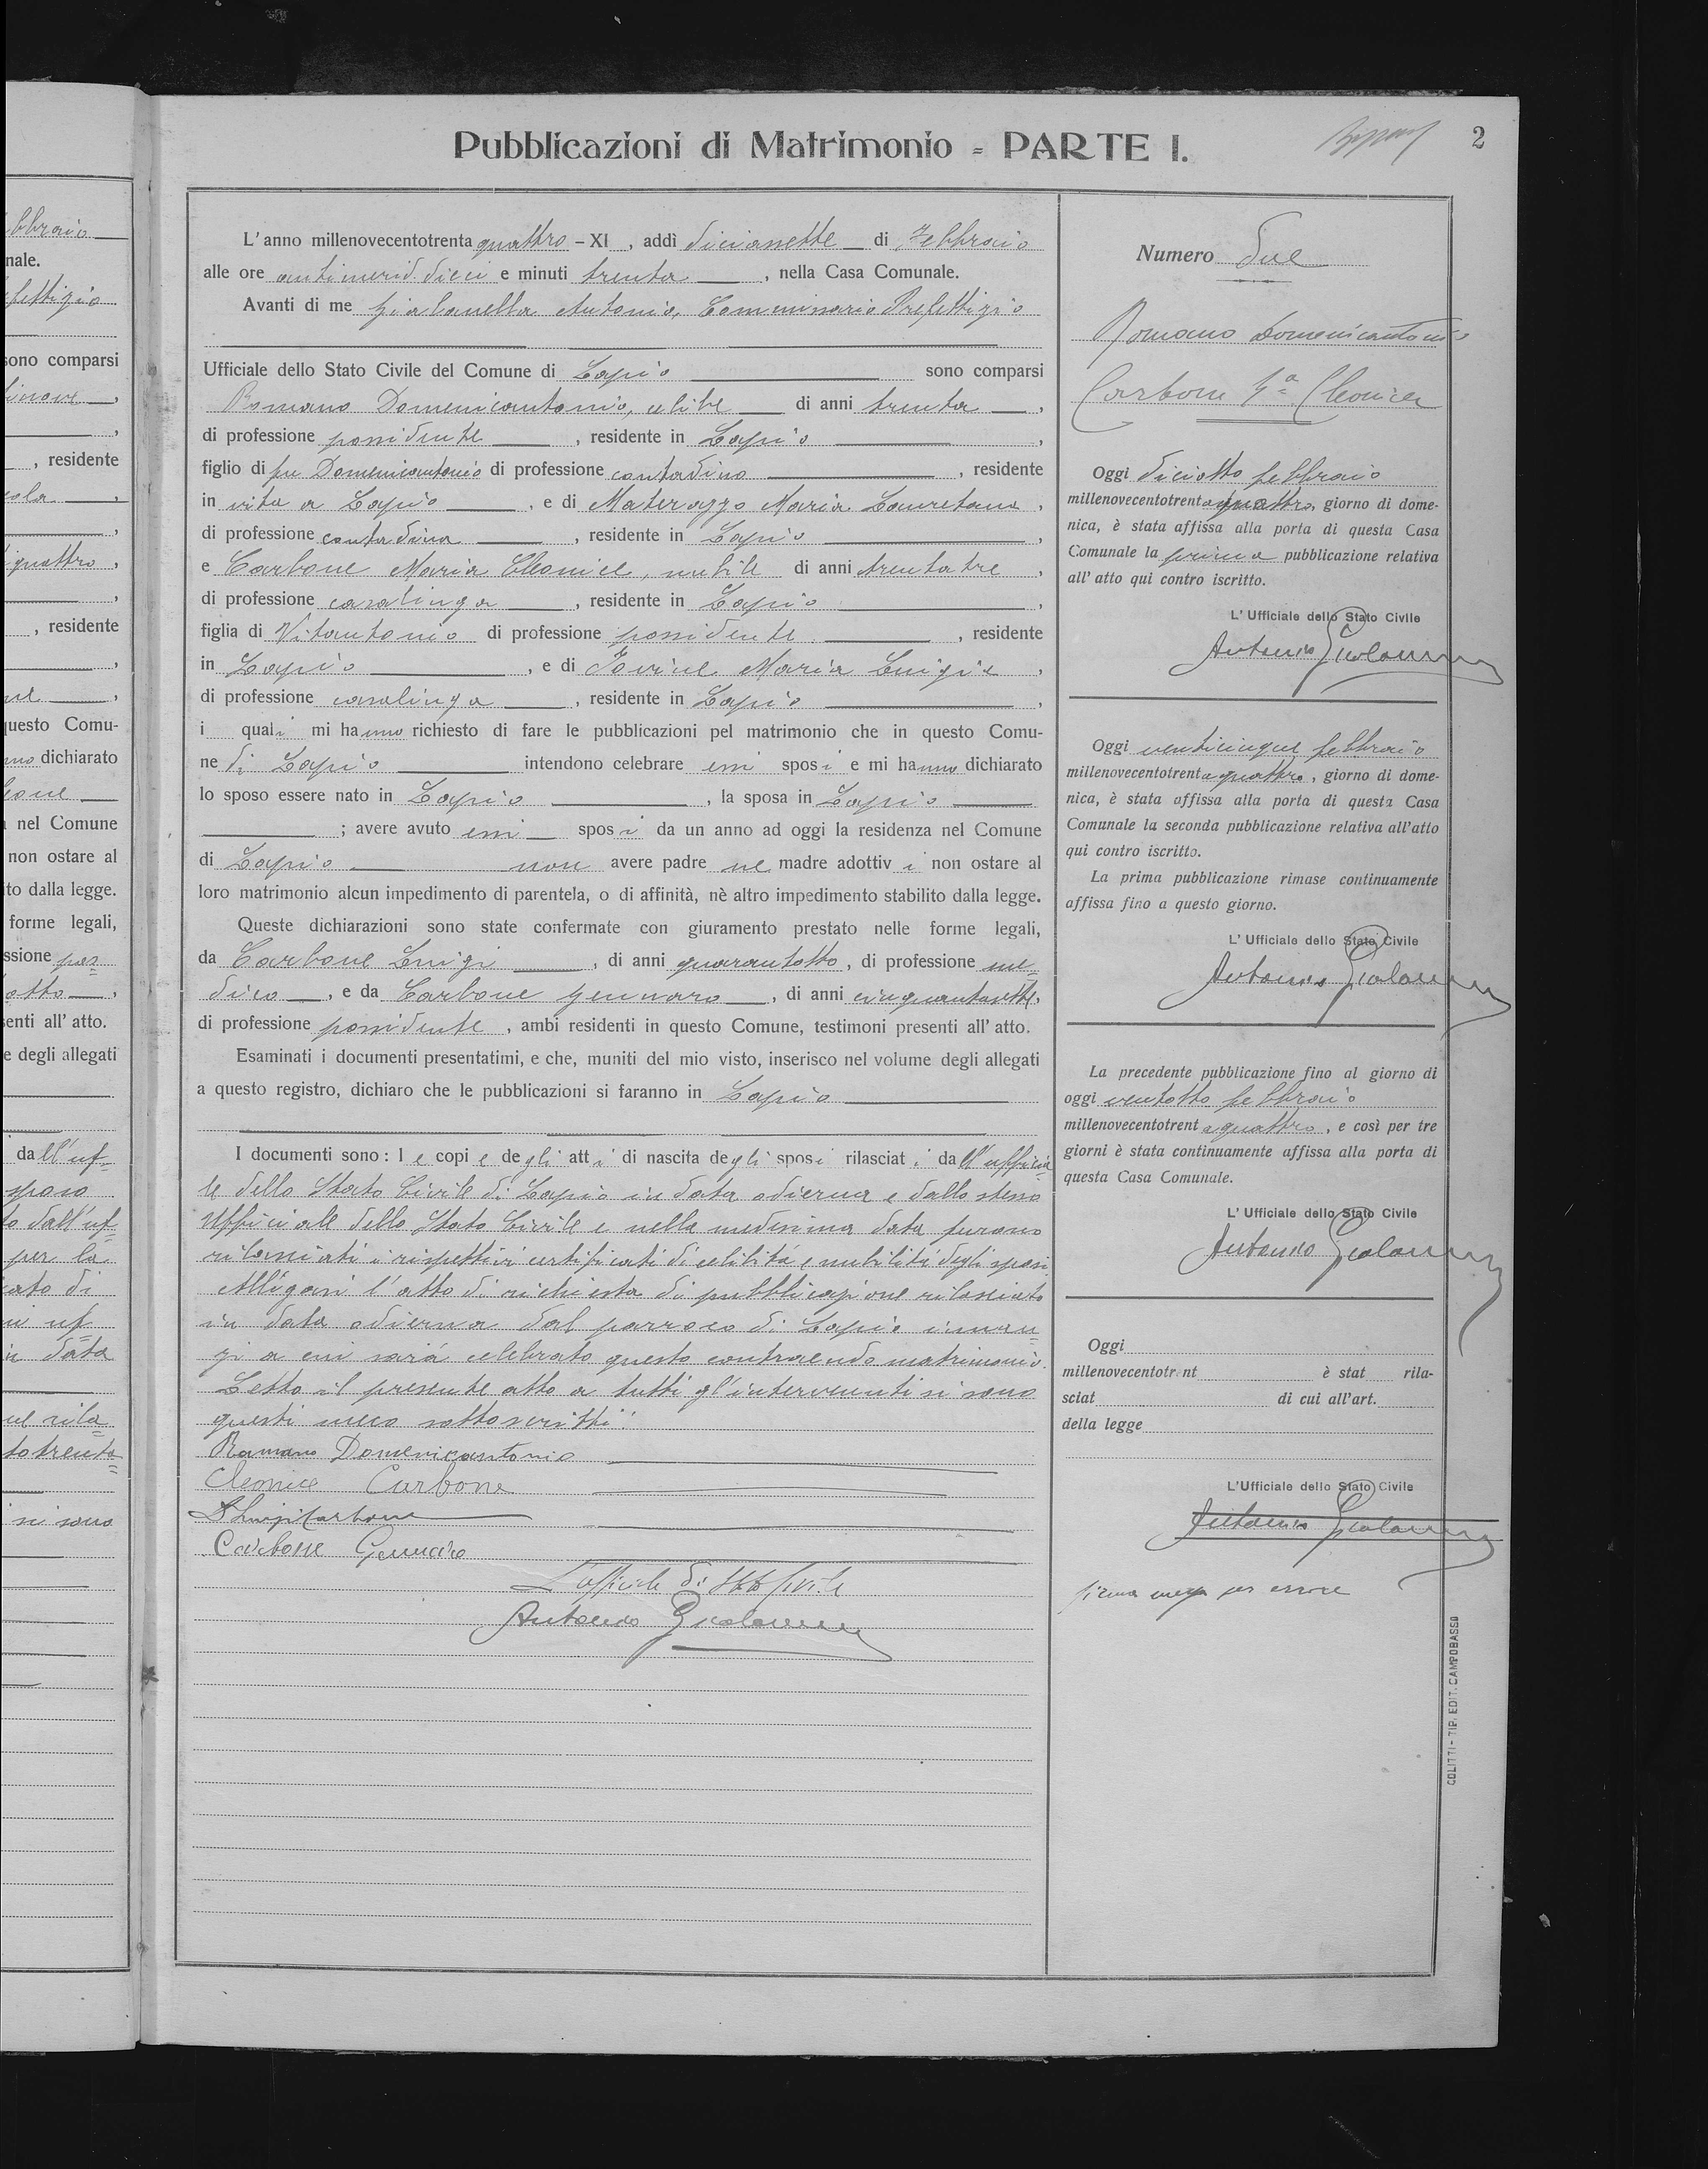 bbraio
nale.
fettizio
sono comparsi
, residente
quattro,
, residente
questo Comu-
nno dichiarato
nel Comune
non ostare al
ito dalla legge.
forme legali,
ssione pos=
otto,
senti all'atto.
e degli allegati
dall'uf=
sposo
to dall'uf=
per la
cato di
uf=
in data
rila=
totrenta=
si sono
Pubblicazioni di Matrimonio = PARTE I.
2
L'anno millenovecentotrenta quattro – XI , addì diciassette di Febbraio
alle ore antimerid. dieci e minuti trenta , nella Casa Comunale.
Avanti di me Antonio, Commissario Prefettizio
Ufficiale dello Stato Civile del Comune di Lapio sono comparsi
Romano Domenicantonio, celibe di anni trenta ,
di professione possidente , residente in Lapio ,
figlio di fu Domenicantonio di professione contadino , residente
in vita a Lapio , e di Materazzo Maria Lauretana ,
di professione contadina , residente in Lapio ,
e Carbone Maria Cleonice, nubile di anni trentatre ,
di professione casalinga , residente in Lapio ,
figlia di Vitantonio di professione possidente , residente
in Lapio , e di Iovine Maria Luigia ,
di professione casalinga , residente in Lapio ,
i quali mi hanno richiesto di fare le pubblicazioni pel matrimonio che in questo Comu-
ne di Lapio intendono celebrare essi sposi e mi hanno dichiarato
lo sposo essere nato in Lapio , la sposa in Lapio
; avere avuto essi sposi da un anno ad oggi la residenza nel Comune
di Lapio non avere padre ne madre adottivi non ostare al
loro matrimonio alcun impedimento di parentela, o di affinità, nè altro impedimento stabilito dalla legge.
Queste dichiarazioni sono state confermate con giuramento prestato nelle forme legali,
da Carbone Luigi , di anni quarantotto , di professione me=
dico , e da Carbone Gennaro , di anni cinquantasette,
di professione possidente , ambi residenti in questo Comune, testimoni presenti all'atto.
Esaminati i documenti presentatimi, e che, muniti del mio visto, inserisco nel volume degli allegati
a questo registro, dichiaro che le pubblicazioni si faranno in Lapio
I documenti sono: le copie degli atti di nascita degli sposi rilasciati dall'ufficia
le dello Stato Civile di Lapio in data odierna e dallo stesso
Ufficiale dello Stato Civile e nella medesima data furono
rilasciati i rispettivi certificati di celibità e nubilità degli sposi.
Allegasi l'atto di richiesta di pubblicazione rilasciato
in data odierna dal parroco di Lapio innan=
zi a cui sarà celebrato questo contraendo matrimonio.
Letto il presente atto a tutti gl'intervenuti si sono
questi meco sottoscritti:
Romano Domenicantonio
Cleonice Carbone
Luigi Carbone
Carbone Gennaro
L'ufficiale di Stato Civile
Antonio
Numero due
Romano Domenicantonio
Carbone Mª Cleonice
Oggi diciotto febbraio
millenovecentotrentaquattro, giorno di dome-
nica, è stata affissa alla porta di questa Casa
Comunale la prima pubblicazione relativa
all'atto qui contro iscritto.
L'Ufficiale dello Stato Civile
Antonio
Oggi venticinque febbraio
millenovecentotrentaquattro, giorno di dome-
nica, è stata affissa alla porta di questa Casa
Comunale la seconda pubblicazione relativa all'atto
qui contro iscritto.
La prima pubblicazione rimase continuamente
affissa fino a questo giorno.
L'Ufficiale dello Stato Civile
Antonio
La precedente pubblicazione fino al giorno di
oggi ventotto febbraio
millenovecentotrentaquattro, e così per tre
giorni è stata continuamente affissa alla porta di
questa Casa Comunale.
L'Ufficiale dello Stato Civile
Antonio
Oggi
millenovecentotrent è stat rila-
sciat di cui all'art.
della legge
L'Ufficiale dello Stato Civile
Antonio
firma messa per errore
COLITTI - TIP. EDIT. CAMPOBASSO